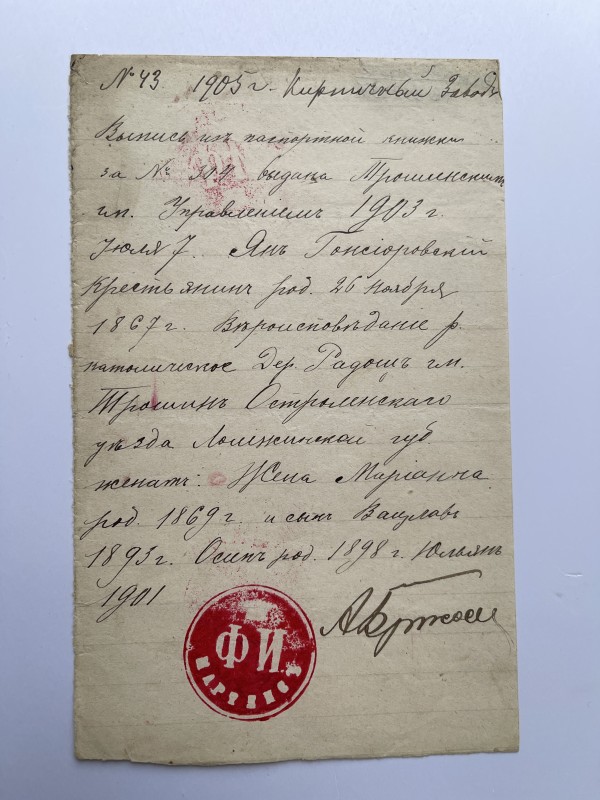 № 43 1905 г. Кирпичный Заводъ
Выпись изъ паспортной книжки
за № выдана Трошинскимъ
гм. Управленіемъ 1903 г.
Іюля 7. Янъ Гонсіоровскій
Крестьянинъ род. 26 Ноября
1867 г. Вѣроисповѣданіе р.
католическое Дер. Радошъ гм.
Трошинъ Остроленскаго
уѣзда Ломжинской губ
женатъ. Жена Маріанна
род. 1869 г. и сынъ Вацлавъ
1893 г. Осипъ род. 1898 г. Юльянъ
1901
ФИ
МАРТЕНСЪ